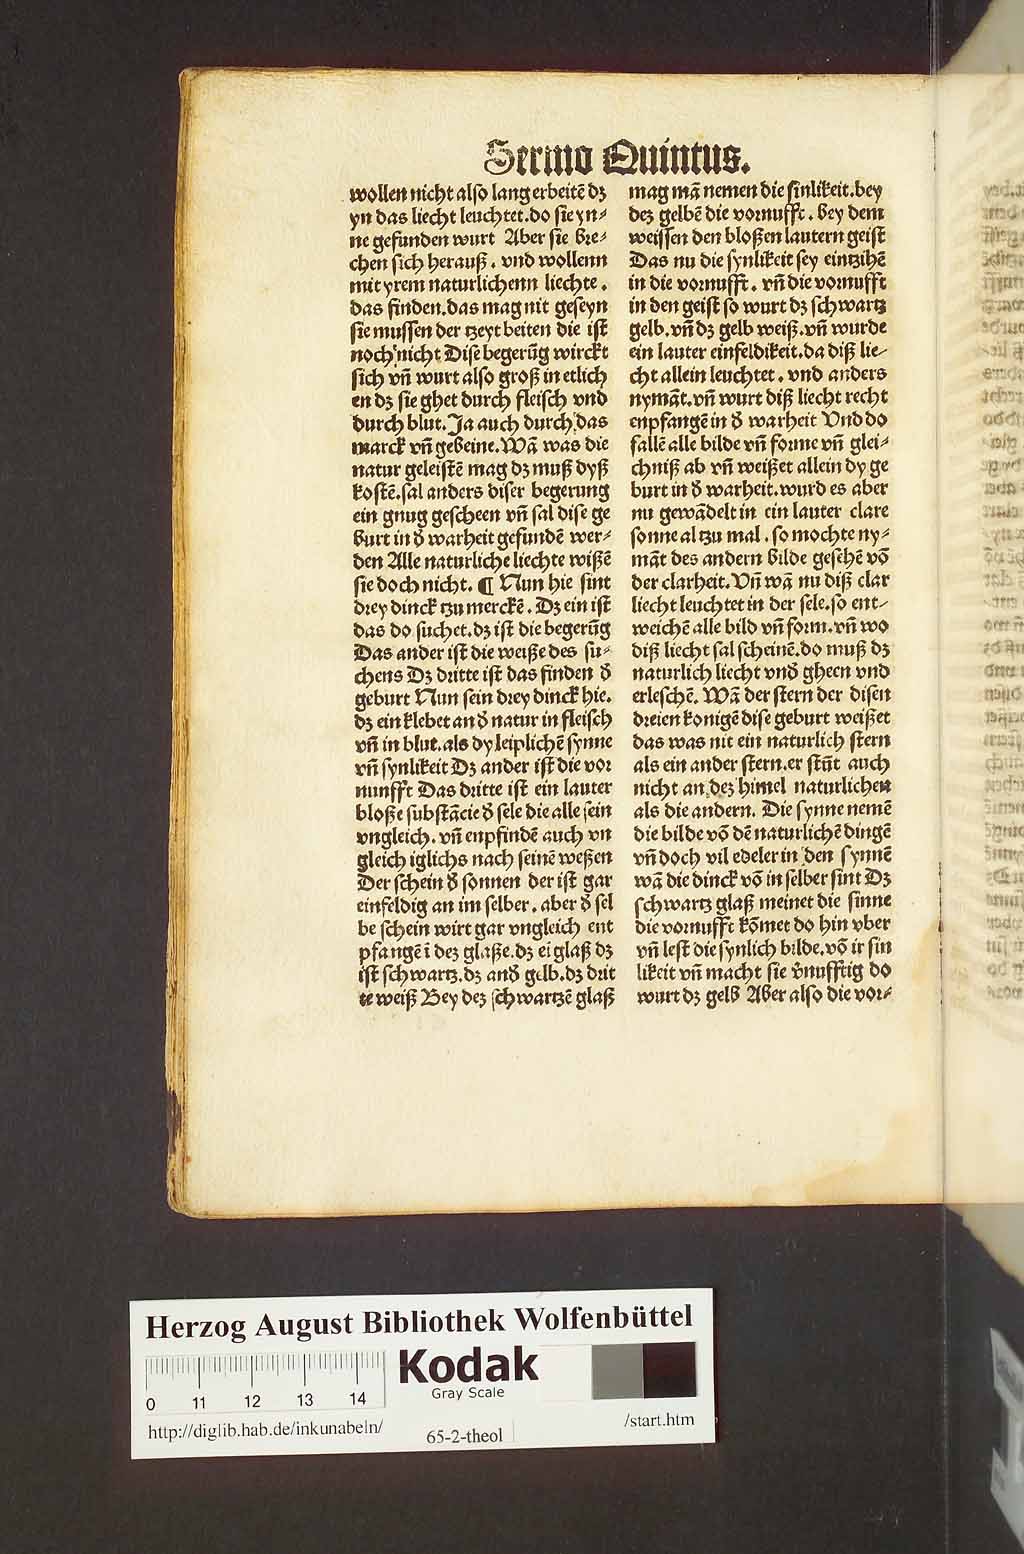 Sermo Quintus.
wollen nicht also lang erbeitē dz
yn das liecht leuchtet. do sie yn⸗
ne gefunden wurt Aber sie bre⸗
chen sich herauß. vnd wollenn
mit yrem naturlichenn liechte.
das finden. das mag nit geseyn
sie mussen der tzeyt beiten die ist
noch nicht Dise begerūg wirckt
sich vñ wurt also groß in etlich
en dz sie ghet durch fleisch vnd
durch blut. Ja auch durch das
marck vñ gebeine. Wā was die
natur geleistē mag dz muß dyß
kostē. sal anders diser begerung
ein gnug gescheen vñ sal dise ge
burt in ď warheit gefundē wer⸗
den Alle naturliche liechte wißē
sie doch nicht. ¶ Nun hie sint
drey dinck tzu merckē. Dz ein ist
das do suchet. dz ist die begerūg
Das ander ist die weiße des su⸗
chens Dz dritte ist das finden ď
geburt Nun sein drey dinck hie.
dz ein klebet an ď natur in fleisch
vñ in blut. als dy leiplichē synne
vñ synlikeit Dz ander ist die vor
nunfft Das dritte ist ein lauter
bloße substācie ď sele die alle sein
vngleich. vñ enpfindē auch vn
gleich iglichs nach seinē weßen
Der schein ď sonnen der ist gar
einfeldig an im selber. aber ď sel
be schein wirt gar vngleich ent
pfangē ī dez glaße. dz ei glaß dz
ist schwartz. dz anď gelb. dz drit
te weiß Bey dez schwartzē glaß
mag mā nemen die sinlikeit. bey
dez gelbē die vornufft. bey dem
weissen den bloßen lautern geist
Das nu die synlikeit sey eintzihē
in die vornufft. vñ die vornufft
in den geist so wurt dz schwartz
gelb. vñ dz gelb weiß. vñ wurde
ein lauter einfeldikeit. da diß lie⸗
cht allein leuchtet. vnd anders
nymāt. vñ wurt diß liecht recht
enpfangē in ď warheit Vnd do
fallē alle bilde vñ forme vñ glei⸗
chniß ab vñ weißet allein dy ge
burt in ď warheit. wurd es aber
nu gewādelt in ein lauter clare
sonne al tzu mal. so mochte ny⸗
māt des andern bilde gesehē vō
der clarheit. Vñ wā nu diß clar
liecht leuchtet in der sele. so ent⸗
weichē alle bild vñ form. vñ wo
diß liecht sal scheinē. do muß dz
naturlich liecht vnď gheen vnd
erleschē. Wā der stern der disen
dreien konigē dise geburt weißet
das was nit ein naturlich stern
als ein ander stern. er stūt auch
nicht an dez himel naturlichen
als die andern. Die synne nemē
die bilde vō dē naturlichē dingē
vñ doch vil edeler in den synnē
wā die dinck vō in selber sint Dz
schwartz glaß meinet die sinne
die vornufft kōmet do hin vber
vñ lest die synlich bilde. vō ir sin
likeit vñ macht sie v̄nufftig do
wurt dz gelb Aber also die vor⸗
Herzog August Bibliothek Wolfenbüttel
Kodak
Gray Scale
0 11 12 13 14
http://diglib.hab.de/inkunabeln/
65-2-theol
/start.htm